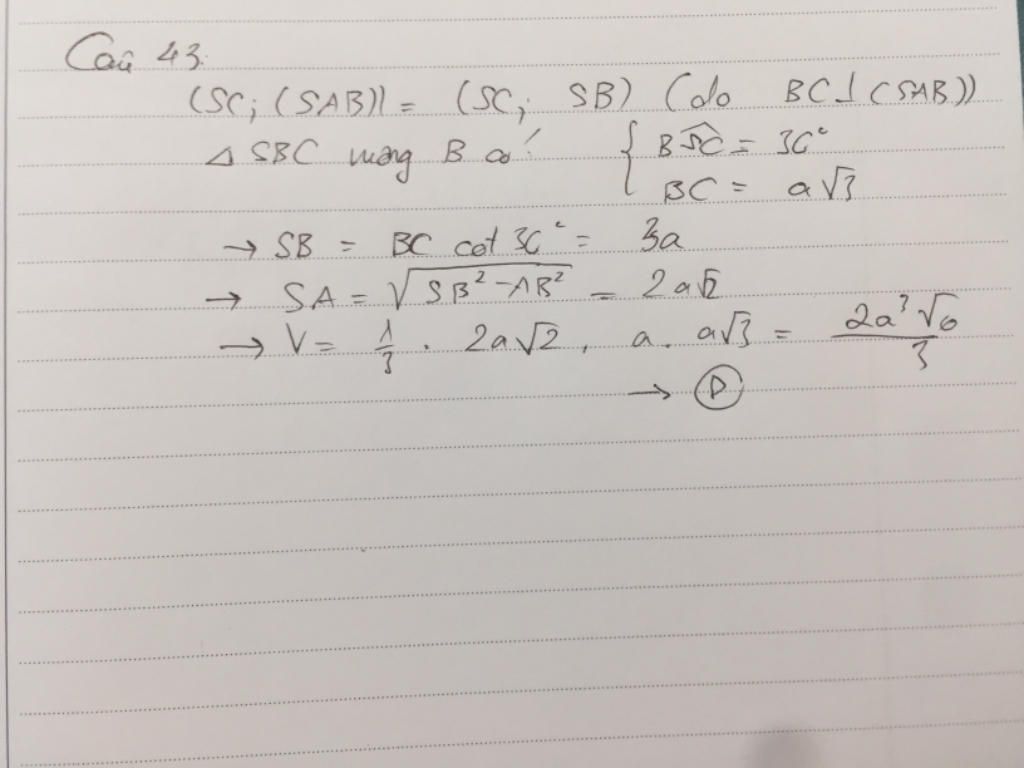 Câu 43.
(SC; (SAB)) = (SC; SB) (do BC ⊥ (SAB))
Δ SBC vuông B có: { BSC = 30°
BC = a√3
→ SB = BC cot 30° = 3a
→ SA = √(SB² - AB²) = 2a√2
→ V = 1/3 . 2a√2 . a . a√3 = 2a³√6/3
→ D